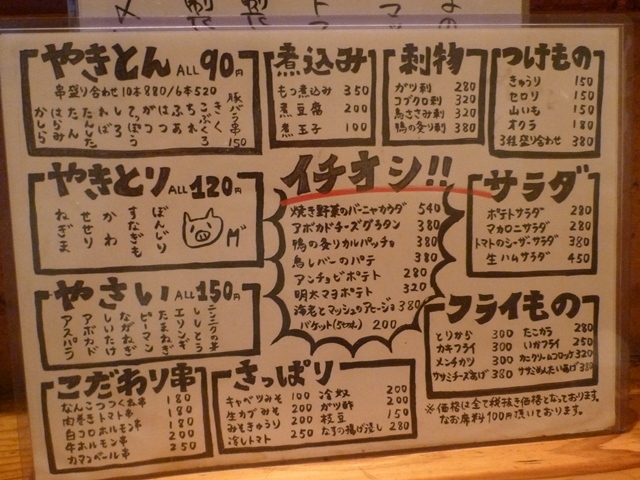 やきとん ALL 90円
串盛り合わせ10本880/6本520
豚バラ串 150
きく
こぶくろ
ちれ
ふわ
はつ
がつ
てっぽう
しろ
れば
たん
たんした
はらみ
かしら
煮込み
もつ煮込み 350
煮豆腐 200
煮玉子 100
刺物
ガツ刺 280
コブクロ刺 320
鳥ささみ刺 320
鴨の炙り刺 380
つけもの
きゅうり 150
セロリ 150
山いも 150
オクラ 180
3種盛り合わせ 380
やきとり ALL 120円
ぼんじり
すなぎも
かわ
せせり
ねぎま
イチオシ!!
焼き野菜のバーニャカウダ 540
アボカドチーズグラタン 380
鴨の炙りカルパッチョ 380
鳥レバーのパテ 380
アンチョビポテト 280
明太マヨポテト 320
海老とマッシュのアヒージョ 380
バケット(5cm) 200
サラダ
ポテトサラダ 280
マカロニサラダ 280
トマトのシーザーサラダ 380
生ハムサラダ 450
やさい ALL 150円
ニンニクの芽
ししとう
エリンギ
たまねぎ
ピーマン
ながねぎ
しいたけ
アボカド
アスパラ
フライもの
とりから 300
カキフライ 300
メンチカツ 300
ササミチーズあげ 380
たこから 280
いかフライ 250
カニクリームコロッケ 320
ササミめんたいあげ 380
こだわり串
なんこつつくね串 180
肉巻きトマト串 180
白コロホルモン串 180
牛ホルモン串 200
カマンベール串 250
さっぱり
キャベツみそ 100
生カブみそ 200
みそきゅうり 200
冷しトマト 250
冷奴 200
ガツ酢 200
枝豆 150
なすの揚げ浸し 280
※価格は全て税抜き価格となっております。
なお席料100円頂いております。